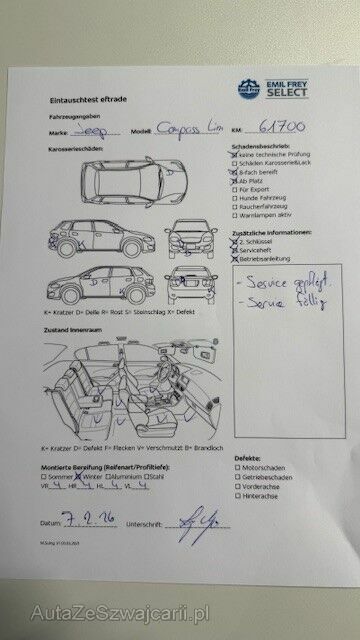 EMIL FREY
SELECT
Eintauschtest eftrade
Fahrzeugangaben
Marke: Jeep Modell: Compass Lim KM: 61700
Karosserieschäden:
Schadensbeschrieb:
keine technische Prüfung
Schäden Karosserie&Lack
8-fach bereift
Ab Platz
Für Export
Hunde Fahrzeug
Raucherfahrzeug
Warnlampen aktiv
Zusätzliche Informationen:
2. Schlüssel
Serviceheft
Betriebsanleitung
K= Kratzer D= Delle R= Rost S= Steinschlag X= Defekt
- Service gepflegt.
- Service fällig
Zustand Innenraum
K= Kratzer D= Defekt F= Flecken V= Verschmutzt B= Brandloch
Montierte Bereifung (Reifenart/Profiltiefe):
Sommer Winter Aluminium Stahl
VR 4 HR 4 HL 4 VL 4
Defekte:
Motorschaden
Getriebeschaden
Vorderachse
Hinterachse
Datum: 7.2.26 Unterschrift:
AutaZeSzwajcarii.pl